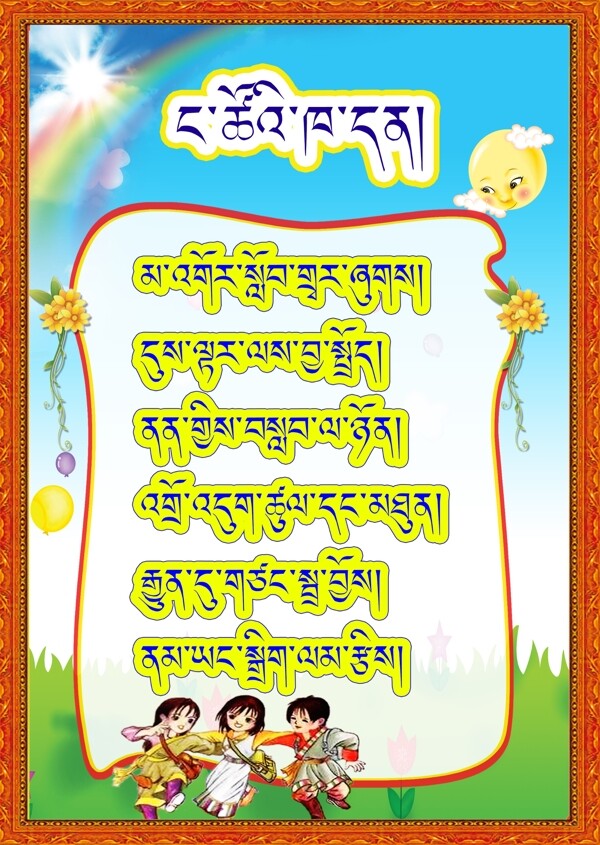 ང་ཚོའི་ཁ་དན།
མ་འགོར་སློབ་གྲར་ཞུགས།
དུས་ལྟར་ལས་བྱ་སྤྲོད།
ནན་གྱིས་བསླབ་ལ་ཉོན།
འགྲོ་འདུག་ཚུལ་དང་མཐུན།
རྒྱུན་དུ་གཙང་སྦྲ་བྱོས།
ནམ་ཡང་སྒྲིག་ལམ་རྩིས།